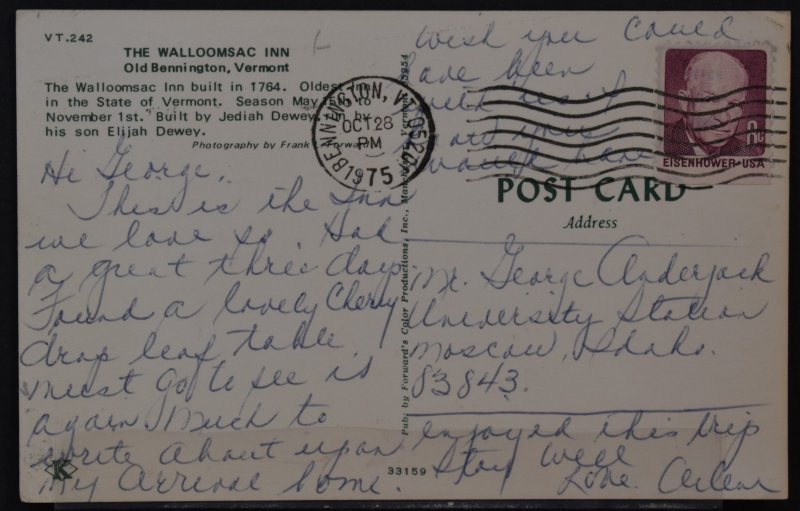 VT.242
THE WALLOOMSAC INN
Old Bennington, Vermont
The Walloomsac Inn built in 1764. Oldest Inn
in the State of Vermont. Season May 15th to
November 1st. Built by Jediah Dewey,
his son Elijah Dewey.
Photography by Frank L. Forward
BENNINGTON, VT 05201
OCT 28
PM
1975
Hi George,
This is the Inn
we love so. Had
a great three days
Found a lovely Cherry
drop leaf table
Must go to see it
again Much to
write about upon
My Arrival home.
K
33159
Pub. by Forward's Color Productions, Inc., Manchester, Vermont 05254
Wish you could
have been
with us
you
would have
EISENHOWER·USA
POST CARD
Address
Mr. George
University Station
Moscow, Idaho.
83843.
enjoyed this trip
Stay Well
Love.